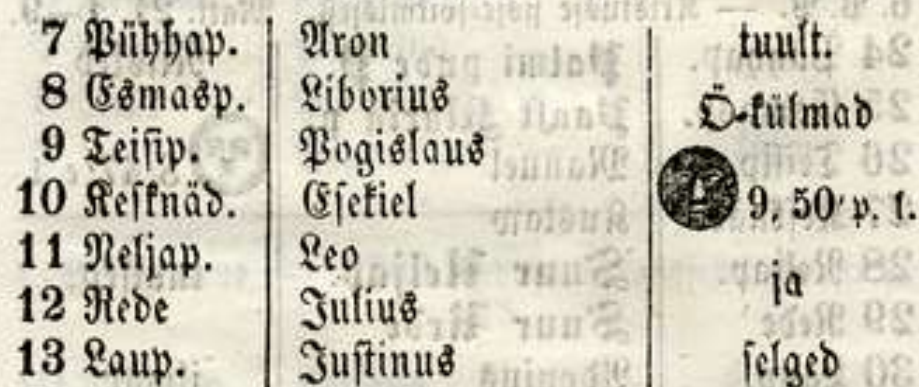 7 Pühhap. Aron tuult.
8 Esmasp. Liborius Ö-külmad
9 Teisip. Pogislaus
10 Kesknäd. Esekiel 9, 50' p. l.
11 Neljap. Leo ja
12 Rede Julius
13 Laup. Justinus selged